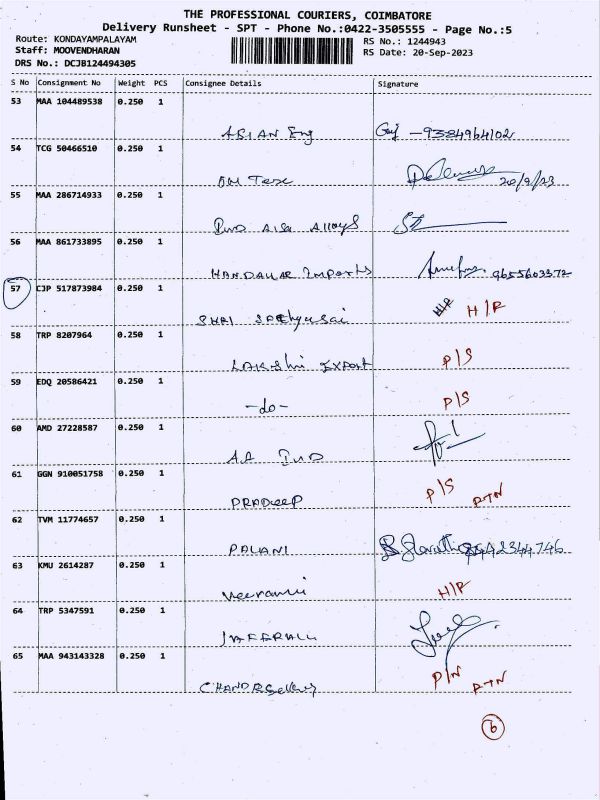 THE PROFESSIONAL COURIERS, COIMBATORE
Delivery Runsheet - SPT - Phone No.:0422-3505555 - Page No.:5
Route: KONDAYAMPALAYAM
RS No.: 1244943
Staff: MOOVENDHARAN
RS Date: 20-Sep-2023
DRS No.: DCJB124494305
S No Consignment No Weight PCS Consignee Details Signature
53 MAA 104489538 0.250 1
ASIAN Eng - 9384964102
54 TCG 50466510 0.250 1
OM Tex 20/9/23
55 MAA 286714933 0.250 1
Alloys
56 MAA 861733895 0.250 1
Imports 9655603372
57 CJP 517873984 0.250 1
SHRI H/R H/R
58 TRP 8207964 0.250 1
LAKSHmi EXPORT P/S
59 EDQ 20586421 0.250 1
-do- P/S
60 AMD 27228587 0.250 1
IND
61 GGN 910051758 0.250 1
PRADeeP P/S RTN
62 TVM 11774657 0.250 1
PALANI
63 KMU 2614287 0.250 1
H/R
64 TRP 5347591 0.250 1
JAFERALI
65 MAA 943143328 0.250 1
P/N RTN
6